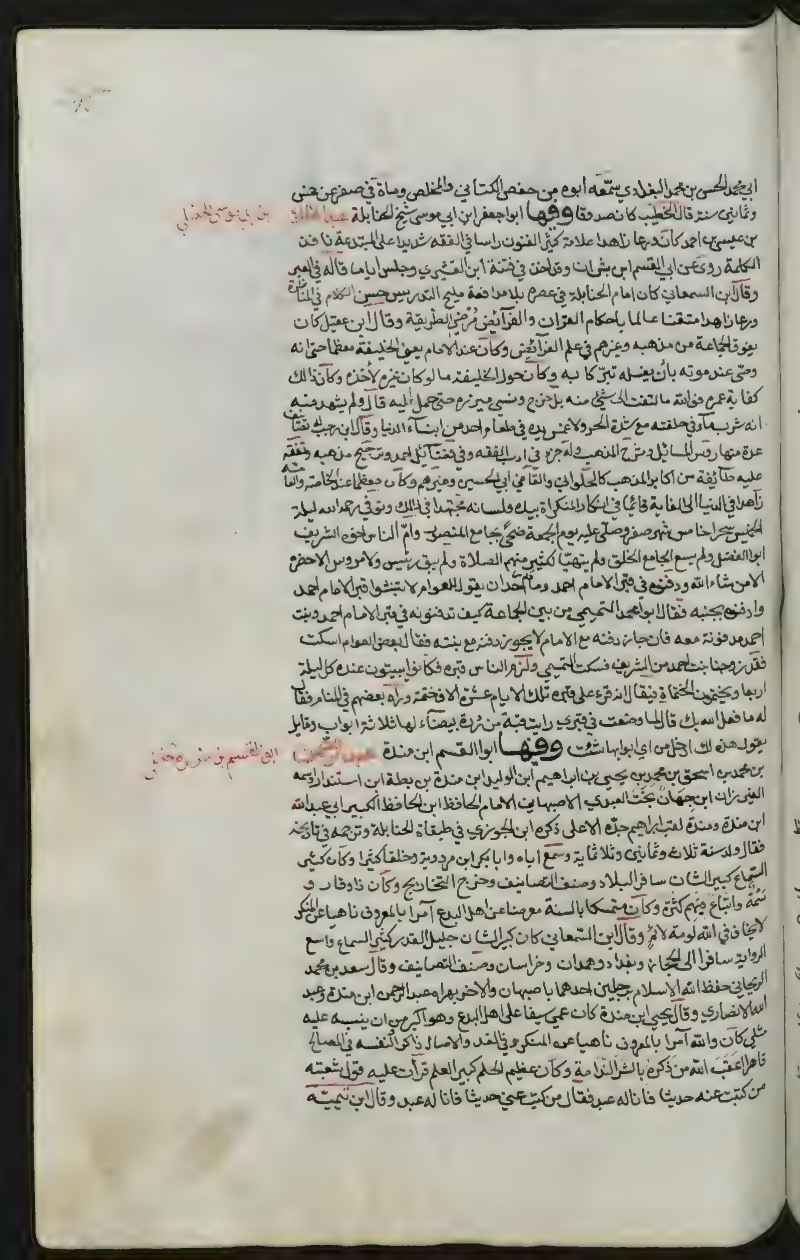 ابي محمد الحسن بن محمد البغدادي سمّعه أبوه من حفص الكتاني والمخلص ومات في صفر عن خمس
وثمانين سنة قال الخطيب كان صدوقا وفيها ابو جعفر ابن ابي موسى شيخ الحنابلة عبد الخالق
بن ابي موسى الحنبلي
بن عيسى بن احمد كان ورعا زاهدا علامة كثير الفنون راسا في الفقه شديدا على المبتدعة نافذ
الكلمة روى عن ابي القسم ابن بشران وقد اخذ في فتنة ابن القشيري وحبس اياما قاله في العبر
وقال ابن السمعاني كان امام الحنابلة في عصره بلا مدافعة مليح التدريس حسن الكلام في المناظرة
ورعا زاهدا متقنا عالما باحكام القران والفرائض مرضي الطريقة وقال ابن عقيل كان
يفوق الجماعة من مذهبه وغيرهم في علم الفرائض وكان عند الامام يعني الخليفة معظما حتى انه
وصى عند موته بأن يغسله تبركا به وكان حول الخليفة ما لو كان غيره لأخذه وكان ذلك
كفاية عمره فوالله ما التفت الى شيء منه بل خرج ونسي ميزره حتى حمل اليه قال ولم يشهد منه
انه شرب ماء في حلقته مع شدة الحر ولا غمس يده في طعام احد من ابناء الدنيا وقال ابن رجب له تصانيف
عدة منها رؤس المسائل وشرح المذهب وله جزء في ادب الفقه وفي فضائل احمد وترجيح مذهبه وتفقه
عليه طائفة من اكابر المذهب كالحلواني والقاضي ابي الحسين وغيرهم وكان معظما عند الخاصة والعامة
زاهدا في الدنيا الى الغاية قائما في انكار المنكرات بيده ولسانه مجتهدا في ذلك وتوفي رحمه الله ليلة
الخميس سحرا خامس شهر صفر وصلي عليه يوم الجمعة ضحى بجامع المنصور وأم الناس اخوه الشريف
ابو الفضل ولم يسع الجامع الخلق ولم يتهيا لكثير منهم الصلاة ولم يبق رئيس ولا مرؤس الا حضره
الا من شاء الله ودفن في قبر الامام احمد وما احد ان يقول للعوام لا تنبشوا قبر الامام احمد
وادفنوه بجنبه فقال ابو محمد التميمي من بين الجماعة كيف تدفنونه في قبر الامام احمد وبنت
احمد مدفونة معه فان جاز دفنه مع الامام لا يجوز دفنه مع بنته فقال بعض العوام اسكت
فقد زوجنا بنت احمد من الشريف فسكت التميمي ولزم الناس قبره فكانوا يبيتون عنده كل ليلة
اربعا ويختمون الختمات فيقال انه قرء على قبره تلك الايام عشرة الاف ختمة وراه بعضهم في المنام فقال
له ما فعل الله بك قال لما وضعت في قبري رايت قبة من درة بيضاء لها ثلاثة ابواب وقايل
يقول هذه لك ادخل من اي ابوابها شئت وفيها ابو القسم ابن مندة عبد الرحمن
ابو القسم بن مندة
بن محمد بن اسحق بن محمد بن يحيى بن ابراهيم ابن الوليد ابن مندة بن بطة ابن استندار واسمه
الفيرزان ابن جهان بخت العبدي الاصبهاني الامام الحافظ ابن الحافظ الكبير ابي عبد الله
ابن مندة ومندة لقب ابراهيم جده الاعلى ذكره ابن الجوزي في طبقات الحنابلة وترجمه في تاريخه
فقال ولد سنة ثلاث وثمانين وثلاثماية وسمع اباه وابا بكر ابن مردوية وخلقا كثيرا وكان كثير
السماع كبير الشان سافر البلاد وصنف التصانيف وخرج التخاريج وكان ذا وقار و
سمت واتباع فيهم كثرة وكان متمسكا بالسنة معرضا عن اهل البدع آمرا بالمعروف ناهيا عن المنكر
لا يخاف في الله لومة لائم وقال ابن السمعاني كان كبير الشان جليل القدر كثير السماع واسع
الرواية سافر الى الحجاز وبغداد وهمدان وخراسان وصنف التصانيف وقال سعد بن محمد
الزنجاني حفظ الله الاسلام برجلين احدهما باصبهان والاخر بهراه عبد الرحمن ابن مندة وعبد
الله الانصاري وقال يحيى ابن مندة كان عمي سيفا على اهل البدع وهو اكبر من ان ينبه عليه
مثلي كان والله آمرا بالمعروف ناهيا عن المنكر وفي الغدو والاصال ذاكرا لنفسه في المصالح
قاهرا اعقب الله من ذكره بالشر الندامة وكان عظيم الحلم كبير العلم قرات عليه قول شعبة
من كتبت عنه حديثا فانا له عبد فقال من كتب عني حديثا فانا له عبد وقال ابن تيمية